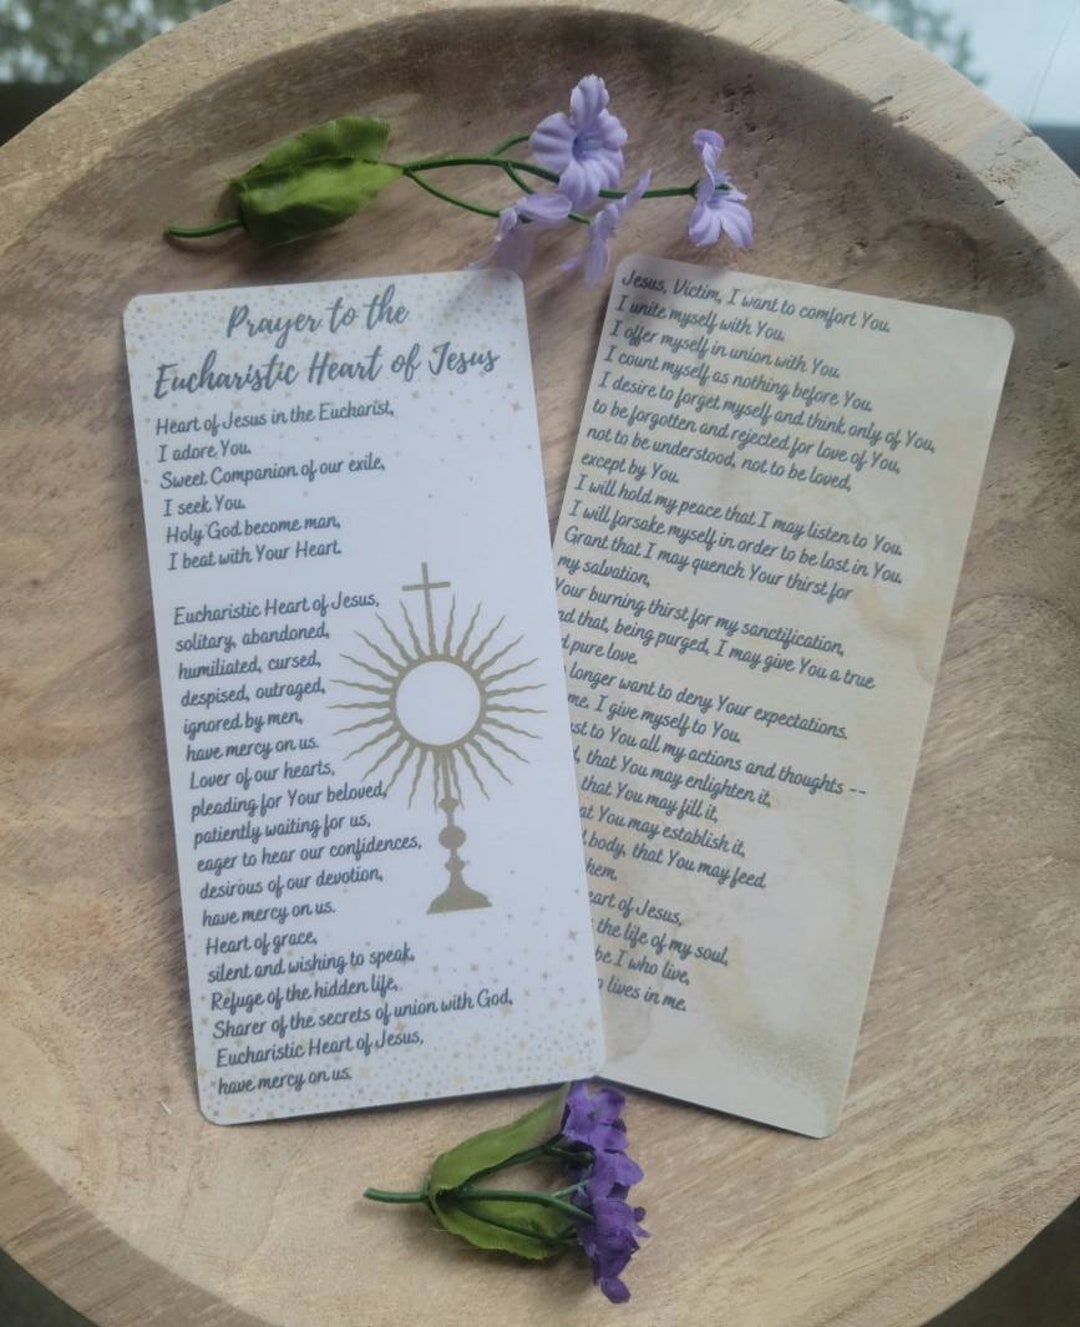 Prayer to the
Eucharistic Heart of Jesus
Heart of Jesus in the Eucharist,
I adore You.
Sweet Companion of our exile,
I seek You.
Holy God become man,
I beat with Your Heart.
Eucharistic Heart of Jesus,
solitary, abandoned,
humiliated, cursed,
despised, outraged,
ignored by men,
have mercy on us.
Lover of our hearts,
pleading for Your beloved,
patiently waiting for us,
eager to hear our confidences,
desirous of our devotion,
have mercy on us.
Heart of grace,
silent and wishing to speak,
Refuge of the hidden life,
Sharer of the secrets of union with God,
Eucharistic Heart of Jesus,
have mercy on us.
Jesus, Victim, I want to comfort You.
I unite myself with You.
I offer myself in union with You.
I count myself as nothing before You.
I desire to forget myself and think only of You,
to be forgotten and rejected for love of You,
not to be understood, not to be loved,
except by You.
I will hold my peace that I may listen to You.
I will forsake myself in order to be lost in You.
Grant that I may quench Your thirst for
my salvation,
Your burning thirst for my sanctification,
that, being purged, I may give You a true
pure love.
longer want to deny Your expectations.
me, I give myself to You.
to You all my actions and thoughts --
that You may enlighten it,
that You may fill it,
You may establish it,
body, that You may feed
of Jesus,
the life of my soul,
be I who live,
lives in me.